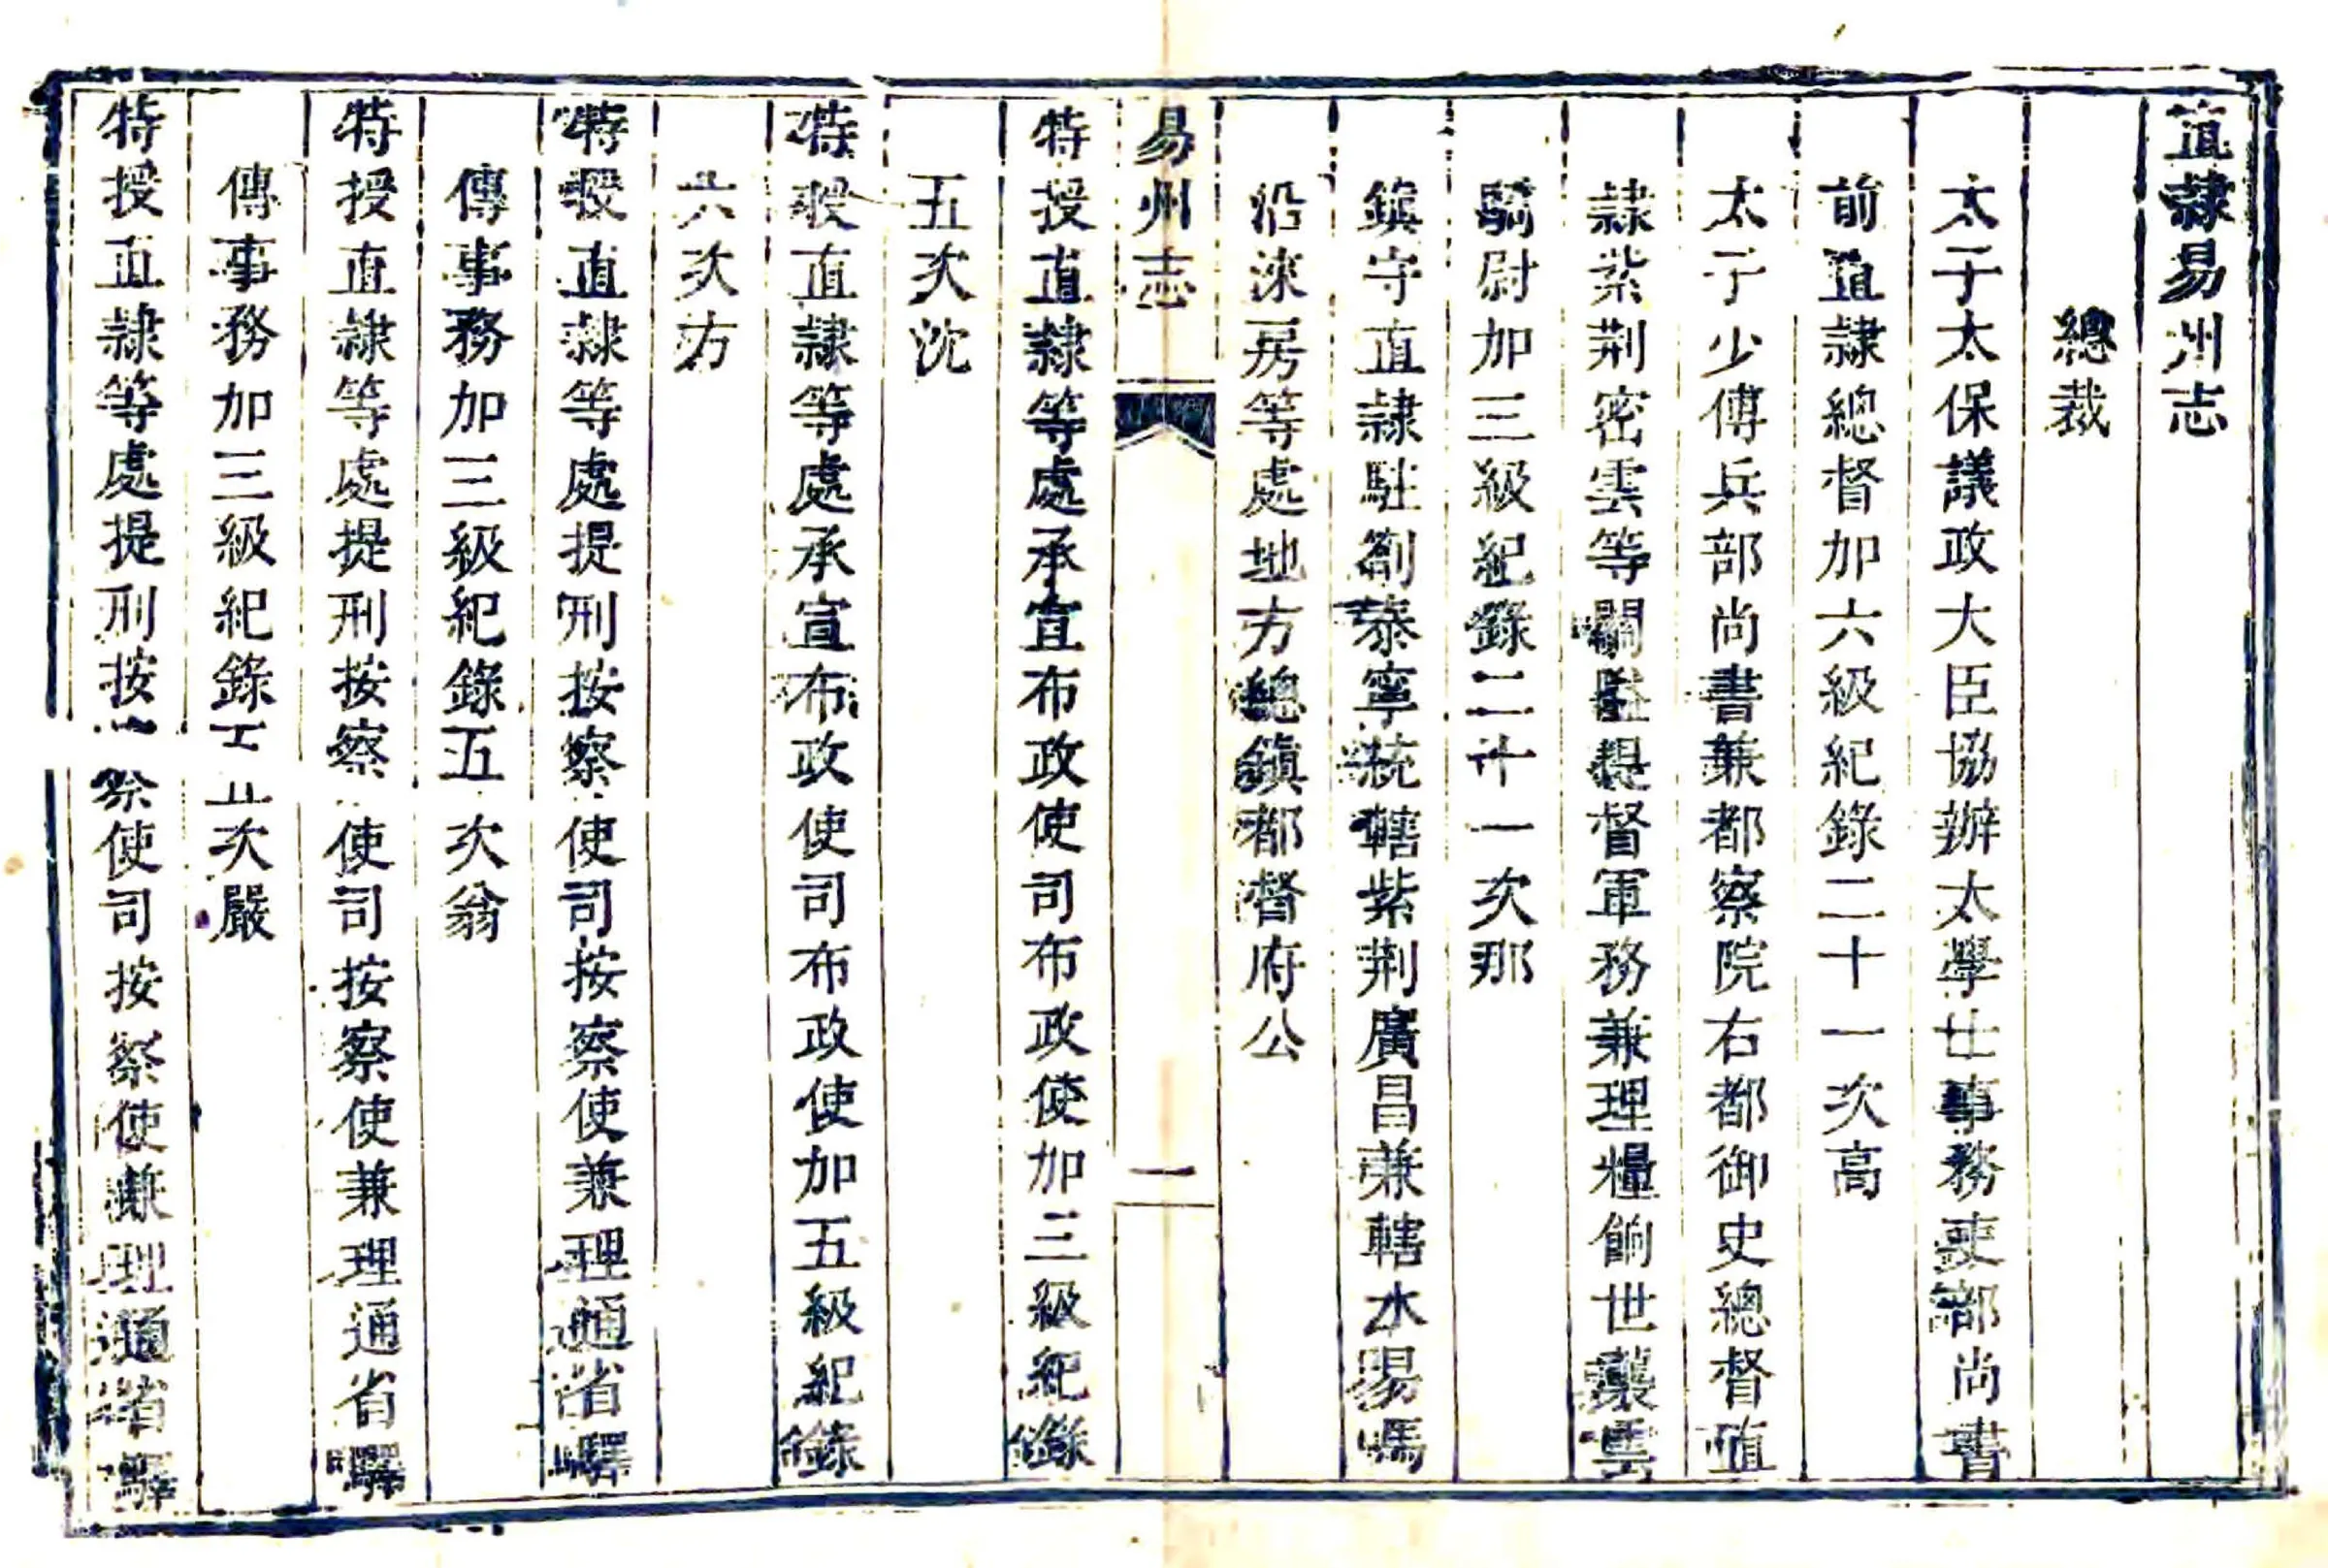 直隷易州志
總裁
太子太保議政大臣協辦太學士事務吏部尚書
前直隷總督加六級紀錄二十一次高
太子少傅兵部尚書兼都察院右都御史總督直
隷紫荆密雲等關隘提督軍務兼理糧餉世襲雲
騎尉加三級紀錄二十一次那
鎮守直隷駐劄泰寧統轄紫荆廣昌兼轄水馬
沿淶房等處地方總鎮都督府公
易州志
一
特授直隷等處承宣布政使司布政使加三級紀錄
五次沈
特授直隷等處承宣布政使司布政使加五級紀錄
六次方
特授直隷等處提刑按察使司按察使兼理通省驛
傳事務加三級紀錄五次翁
特授直隷等處提刑按察使司按察使兼理通省驛
傳事務加三級紀錄五次嚴
特授直隷等處提刑按察使司按察使兼理通省驛